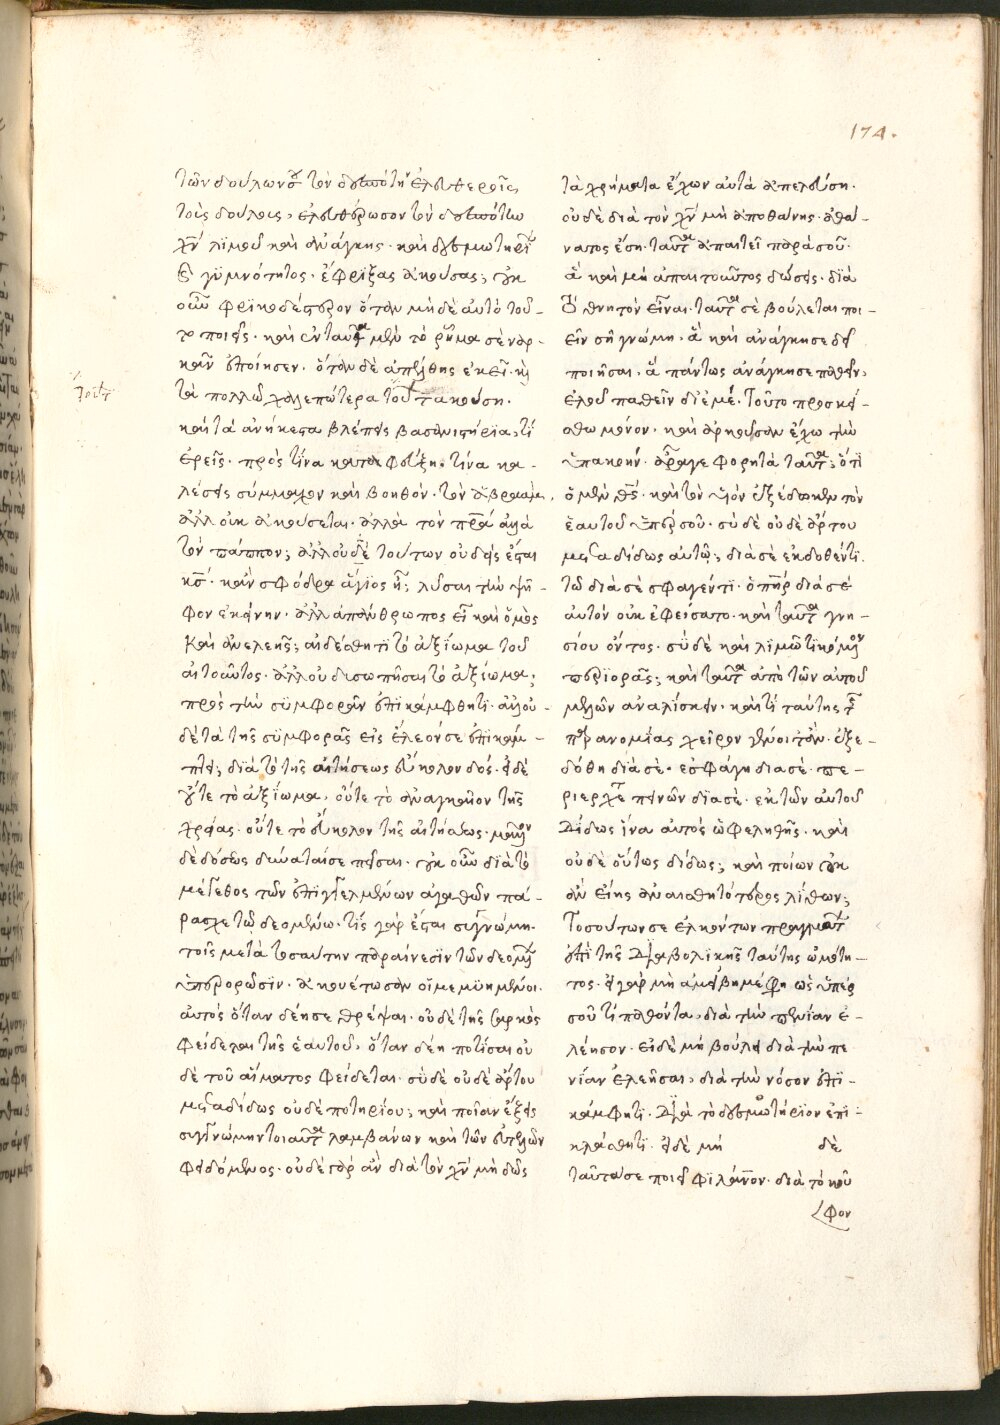 174.
τῶν δούλων σου τὸν δεσπότην ἐλευθεροῖς
τοὺς δούλους, ἐλευθέρωσον τὸν δεσπότην
χν̄ λιμοῦ καὶ ἀνάγκης· καὶ δεσμωτηρίου
γυμνότητος· ἔφριξας ἀκούσας; οὐκ
οὖν φρικοδέστερον ὅταν μηδὲ αὐτὸ τοῦ-
το ποιῇς· καὶ ἐνταῦθα μὲν τὸ ῥῆμα σὲ ναρ-
κᾶν ἐποίησεν· ὅταν δὲ ἀπέλθῃς ἐκεῖ· καὶ
τὰ πολλῷ χαλεπώτερα τούτων ἀκούσῃ·
καὶ τὰ ἀνήκεστα βλέπῃς βασανιστήρια, τί
ἐρεῖς· πρὸς τίνα καταφεύξῃ· τίνα κα-
λέσεις σύμμαχον καὶ βοηθόν· τὸν ἀβραάμ;
ἀλλ οὐκ ἀκούσεται· ἀλλὰ τὸν πρ̄α ἀλλὰ
τὸν πάππον; ἀλλ οὐδὲ τούτων οὐδεὶς ἔσται
κς̄· κἂν σφόδρα ἅγιος ᾖ; λῦσαι τὴν ψῆ-
φον ἐκείνην· ἀλλ ἀπάνθρωπος εἶ καὶ ὠμὸς
καὶ ἀνελεής; αἰδέσθητι τὸ ἀξίωμα τοῦ
αἰτοῦντος· ἀλλ οὐ δυσωπῆσαι τὸ ἀξίωμα;
πρὸς τὴν συμφορὰν ἐπικάμφθητι· ἀλλ οὐ-
δὲ τὰ τῆς συμφορᾶς εἰς ἔλεόν σε ἐπικάμ-
πτει; διὰ τὸ τῆς αἰτήσεως εὔκολον δός· εἰ δὲ
οὔτε τὸ ἀξίωμα, οὔτε τὸ ἀναγκαῖον τῆς
χρείας· οὔτε τὸ εὔκολον τῆς αἰτήσεως·
δὲ δόσεως δύναταί σε πεῖσαι· οὐκ οὖν διὰ τὸ
μέγεθος τῶν ἐπηγγελμένων ἀγαθῶν πα-
ράσχε τῷ δεομένῳ· τίς γὰρ ἔσται συγνώμη·
τοῖς μετὰ τοσαύτην παραίνεσιν τῶν δεομένων
ὑπερορῶσιν· ἀκουέτωσαν οἱ μεμυημένοι·
αὐτὸς ὅταν δέῃ σε θρέψαι· οὐδὲ τῆς σαρκὸς
φείδεται τῆς ἑαυτοῦ, ὅταν δέῃ ποτίσαι οὐ
δὲ τοῦ αἵματος φείδεται· σὺ δὲ οὐδὲ ἄρτου
μεταδίδως οὐδὲ ποτηρίου; καὶ ποίαν ἕξεις
συγγνώμην τοιαῦτα λαμβάνων καὶ τῶν εὐτελῶν
φειδόμενος· οὐδὲ γὰρ ἂν διὰ τὸν χν̄ μὴ δῷς
τὰ χρήματα ἔχων αὐτὰ ἀπελεύσῃ·
οὐδὲ διὰ τὸν χν̄ μὴ ἀποθάνῃς· ἀθά-
νατος ἔσῃ· ταῦτα ἀπαιτεῖ παρὰ σοῦ·
ἃ καὶ μὴ ἀπαιτοῦντος δώσεις· διὰ
τὸ θνητὸν εἶναι· ταῦτα σὲ βούλεται ποι-
εῖν σῇ γνώμῃ· ἃ καὶ ἀνάγκῃ σε δεῖ
ποιῆσαι, ἃ πάντως ἀνάγκη σε παθεῖν,
ἑλοῦ παθεῖν δι ἐμέ· τοῦτο προσκεί-
σθω μόνον· καὶ ἀρκοῦσαν ἔχω τὴν
ὑπακοήν· ἆρά γε φορητὰ ταῦτα; ὅτι
ὁ μὲν θς̄· καὶ τὸν υἱὸν ἐξέδωκεν τὸν
ἑαυτοῦ ὑπὲρ σοῦ· σὺ δὲ οὐδὲ ἄρτου
μεταδίδως αὐτῷ; διὰ σὲ ἐκδοθέντι.
τῷ διὰ σὲ σφαγέντι· ὁ πηρ̄ διὰ σὲ
αὐτὸν οὐκ ἐφείσατο· καὶ ταῦτα γνη-
σίου ὄντος· σὺ δὲ καὶ λιμῷ τηκόμενον
περιορᾷς; καὶ ταῦτα ἀπὸ τῶν αὐτοῦ
μέλλων ἀναλίσκειν· καὶ τί ταύτης τῆς
παρανομίας χεῖρον γένοιτ ἄν· ἐξε-
δόθη διὰ σὲ· ἐσφάγη διὰ σὲ· πε-
ριέρχεται πεινῶν διὰ σὲ· ἐκ τῶν αὐτοῦ
δίδως ἵνα αὐτὸς ὠφεληθῇς· καὶ
οὐδὲ οὕτως δίδως; καὶ ποίων οὐκ
ἂν εἴης ἀναισθητότερος λίθων;
τοσούτων σε ἑλκόντων πραγμάτων
ἐπὶ τῆς διαβολικῆς ταύτης ὠμότη-
τος· εἰ γὰρ μὴ ἀμείβῃ με φησὶ ὡς ὑπὲρ
σοῦ τι παθόντα, διὰ τὴν πενίαν ἐ-
λέησον· εἰ δὲ μὴ βούλει διὰ τὴν πε
νίαν ἐλεῆσαι, διὰ τὴν νόσον ἐπι-
κάμφητι· διὰ τὸ δεσμωτήριον ἐπι-
κλάσθητι· εἰ δὲ μὴ δὲ
ταῦτά σε ποιεῖ φιλάνον· διὰ τὸ κοῦ
φον